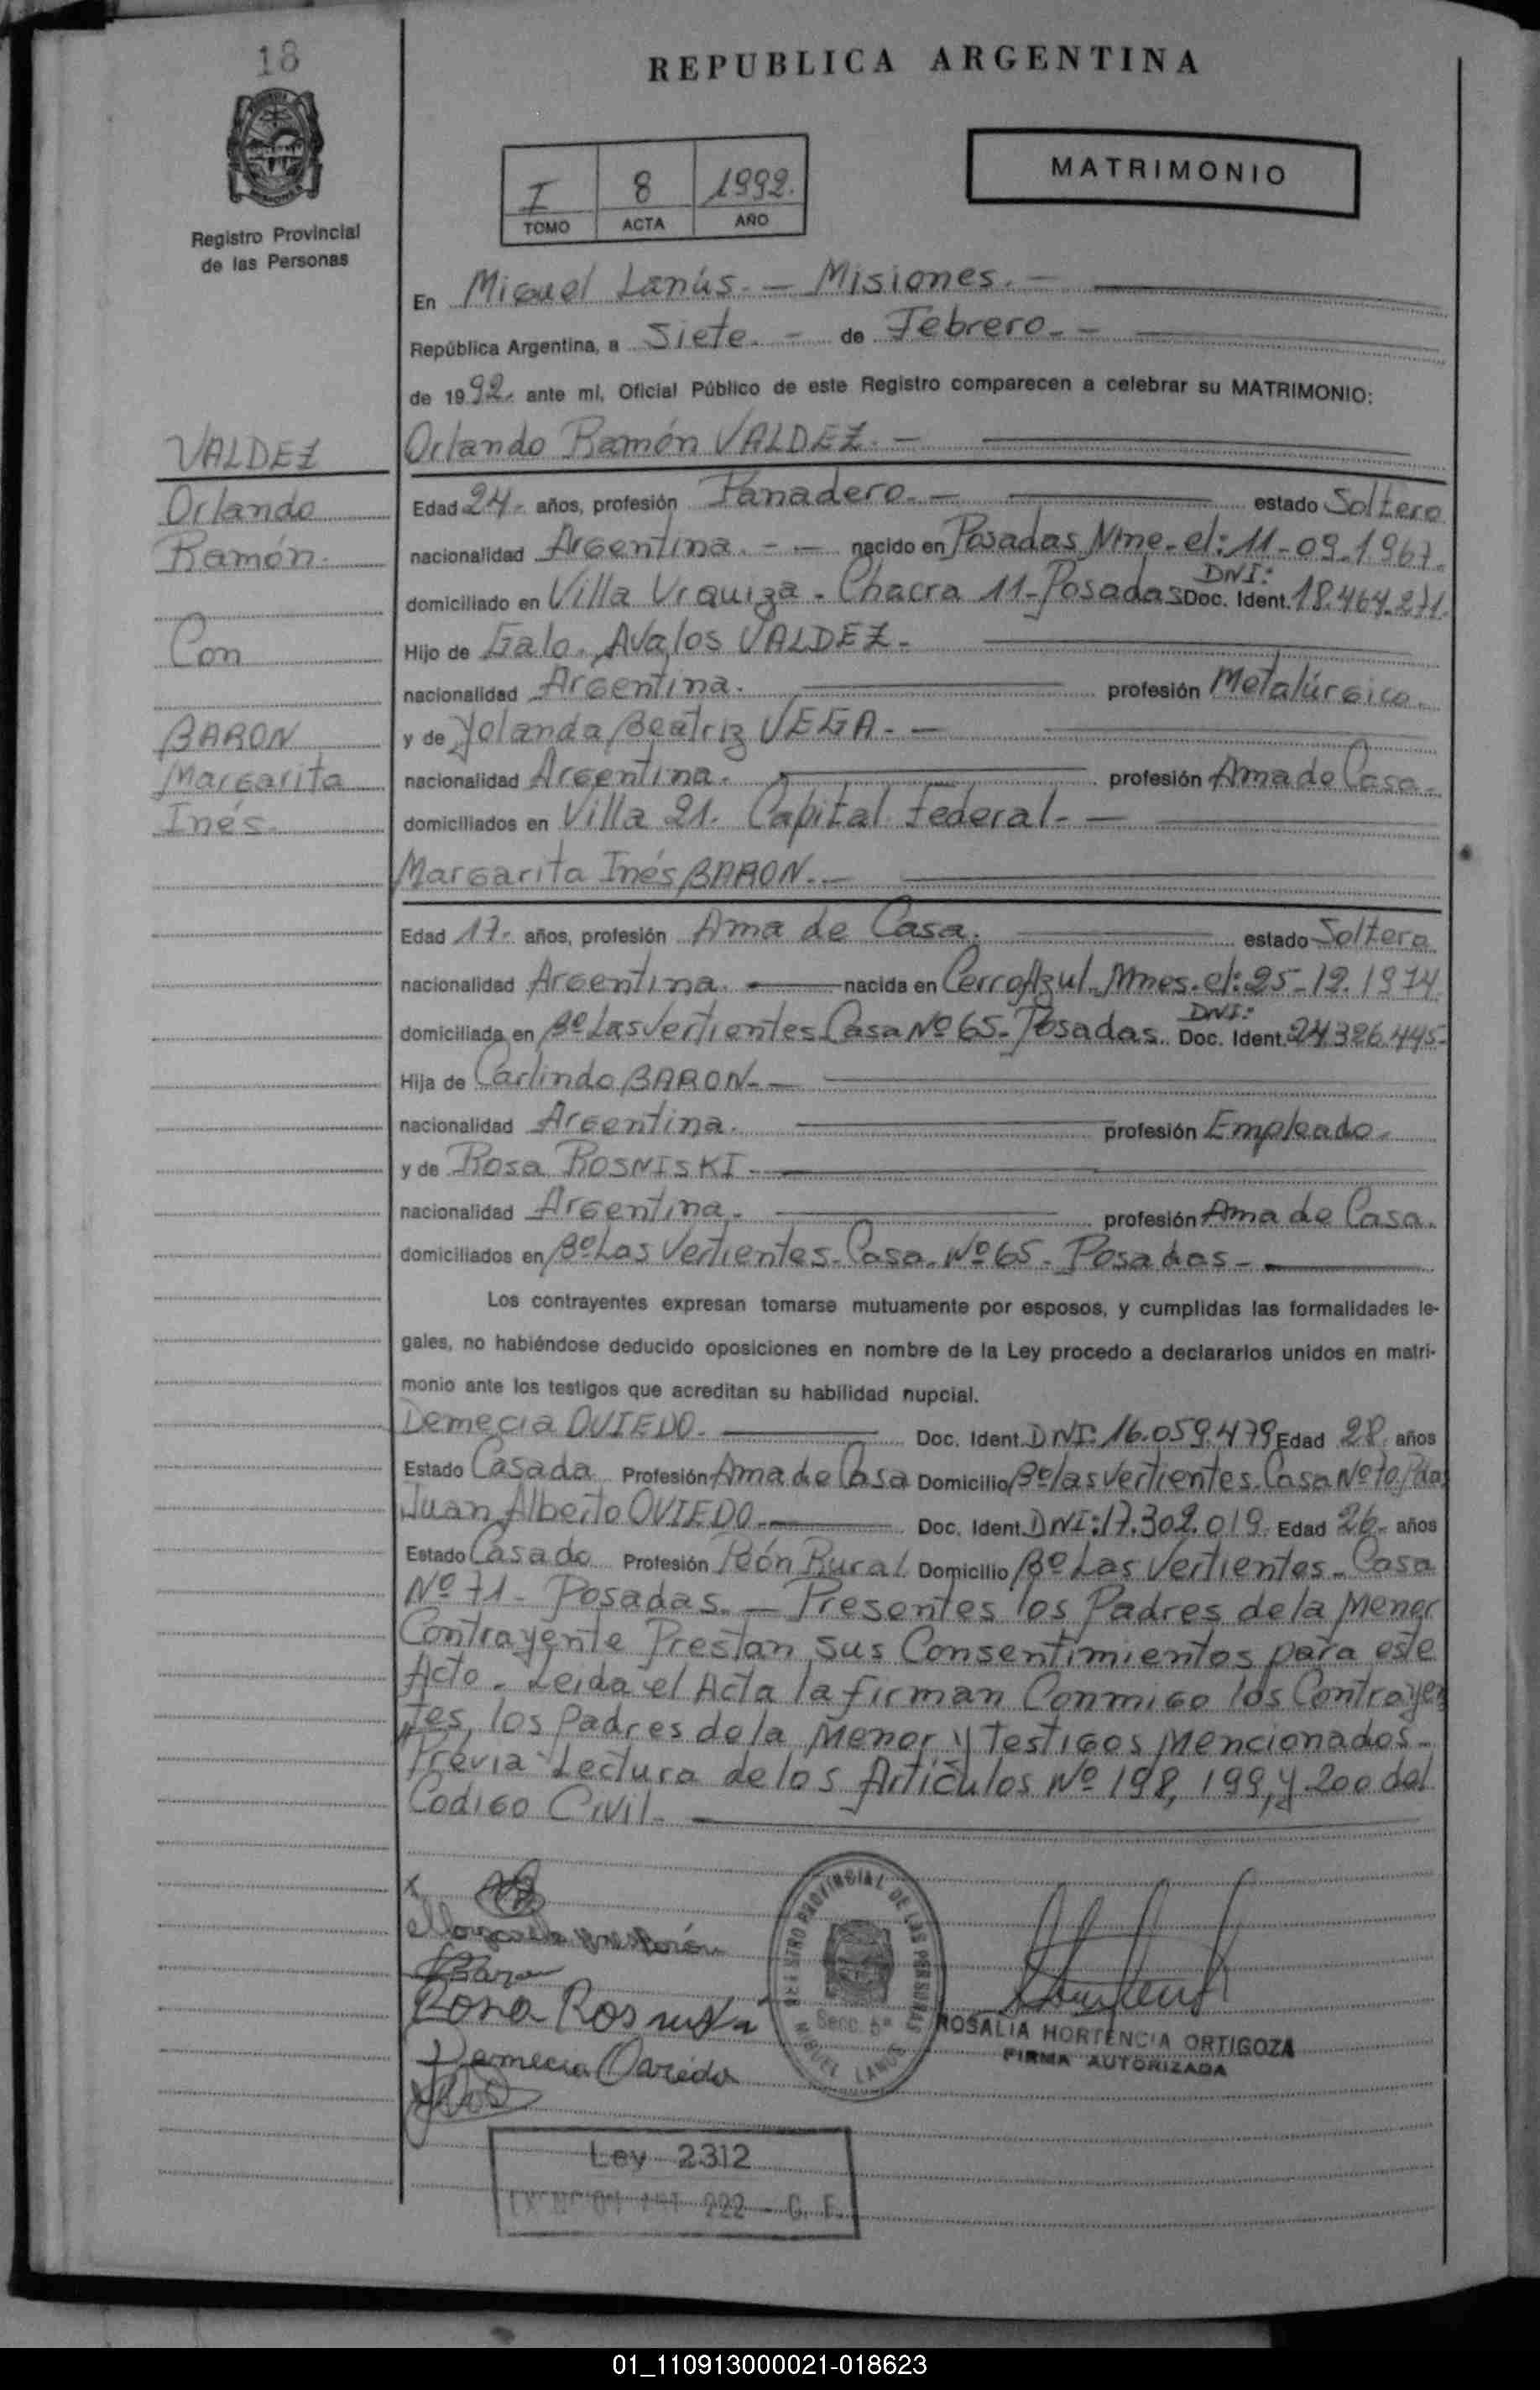 18
REPUBLICA ARGENTINA
MATRIMONIO
I 8 1992.
TOMO ACTA AÑO
Registro Provincial
de las Personas
En Miguel Lanús. — Misiones. —
República Argentina, a Siete. - de Febrero. -
de 1992. ante mi, Oficial Público de este Registro comparecen a celebrar su MATRIMONIO:
VALDEZ
Orlando
Ramón.
Con
BARON
Margarita
Inés.
Orlando Ramón VALDEZ. —
Edad 24. años, profesión Panadero. — estado Soltero
nacionalidad Argentina. - — nacido en Posadas Mne. el: 11-09-1967.
domiciliado en Villa Urquiza - Chacra 11-Posadas Doc. Ident. DNI: 18.464.271.
Hijo de Galo. Avalos VALDEZ.
nacionalidad Argentina. profesión Metalúrgico.
y de Yolanda Beatriz VEGA. —
nacionalidad Argentina. profesión Ama de Casa.
domiciliados en Villa 21. Capital Federal. —
Margarita Inés BARON. —
Edad 17. años, profesión Ama de Casa. estado Soltera
nacionalidad Argentina. — nacida en Cerro Azul. Mnes. el: 25-12.1974.
domiciliada en Bº Las Vertientes Casa Nº 65- Posadas. Doc. Ident. DNI: 24.326.445-
Hija de Carlindo BARON. —
nacionalidad Argentina. profesión Empleado.
y de Rosa ROSNISKI. —
nacionalidad Argentina. profesión Ama de Casa.
domiciliados en Bº Las Vertientes. Casa. Nº 65 - Posadas -
Los contrayentes expresan tomarse mutuamente por esposos, y cumplidas las formalidades le-
gales, no habiéndose deducido oposiciones en nombre de la Ley procedo a declararlos unidos en matri-
monio ante los testigos que acreditan su habilidad nupcial.
Demecia OVIEDO. Doc. Ident. DNI: 16.059.479 Edad 28. años
Estado Casada Profesión Ama de Casa Domicilio Bº las Vertientes. Casa Nº 70. Pdas
Juan Alberto OVIEDO. Doc. Ident. DNI: 17.302.019. Edad 26. años
Estado Casado Profesión Peón Rural Domicilio Bº Las Vertientes. Casa
Nº 71 - Posadas. — Presentes los Padres de la Menor
Contrayente Prestan sus Consentimientos para este
Acto. Leida el Acta la firman Conmigo los Contrayen
tes, los Padres de la Menor y Testigos Mencionados.
Previa Lectura de los Artículos Nº 198, 199, y 200 del
Codigo Civil.
x
Rosa
Demecia Oviedo
REGISTRO PROVINCIAL DE LAS PERSONAS
Secc. 5ª
MIGUEL LANUS
ROSALIA HORTENCIA ORTIGOZA
FIRMA AUTORIZADA
Ley 2312
222 - C. F.
01_110913000021-018623